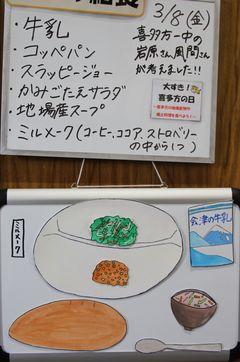 給食
3/8(金)
・牛乳
・コッペパン
・スラッピージョー
・かみごたえサラダ
・地場産スープ
・ミルメーク(コーヒー、ココア、ストロベリー
の中から1つ)
喜多方一中の
岩原さん、風間さん
が考えました!!
大すき!
喜多方の日
ミルメーク
会津の牛乳